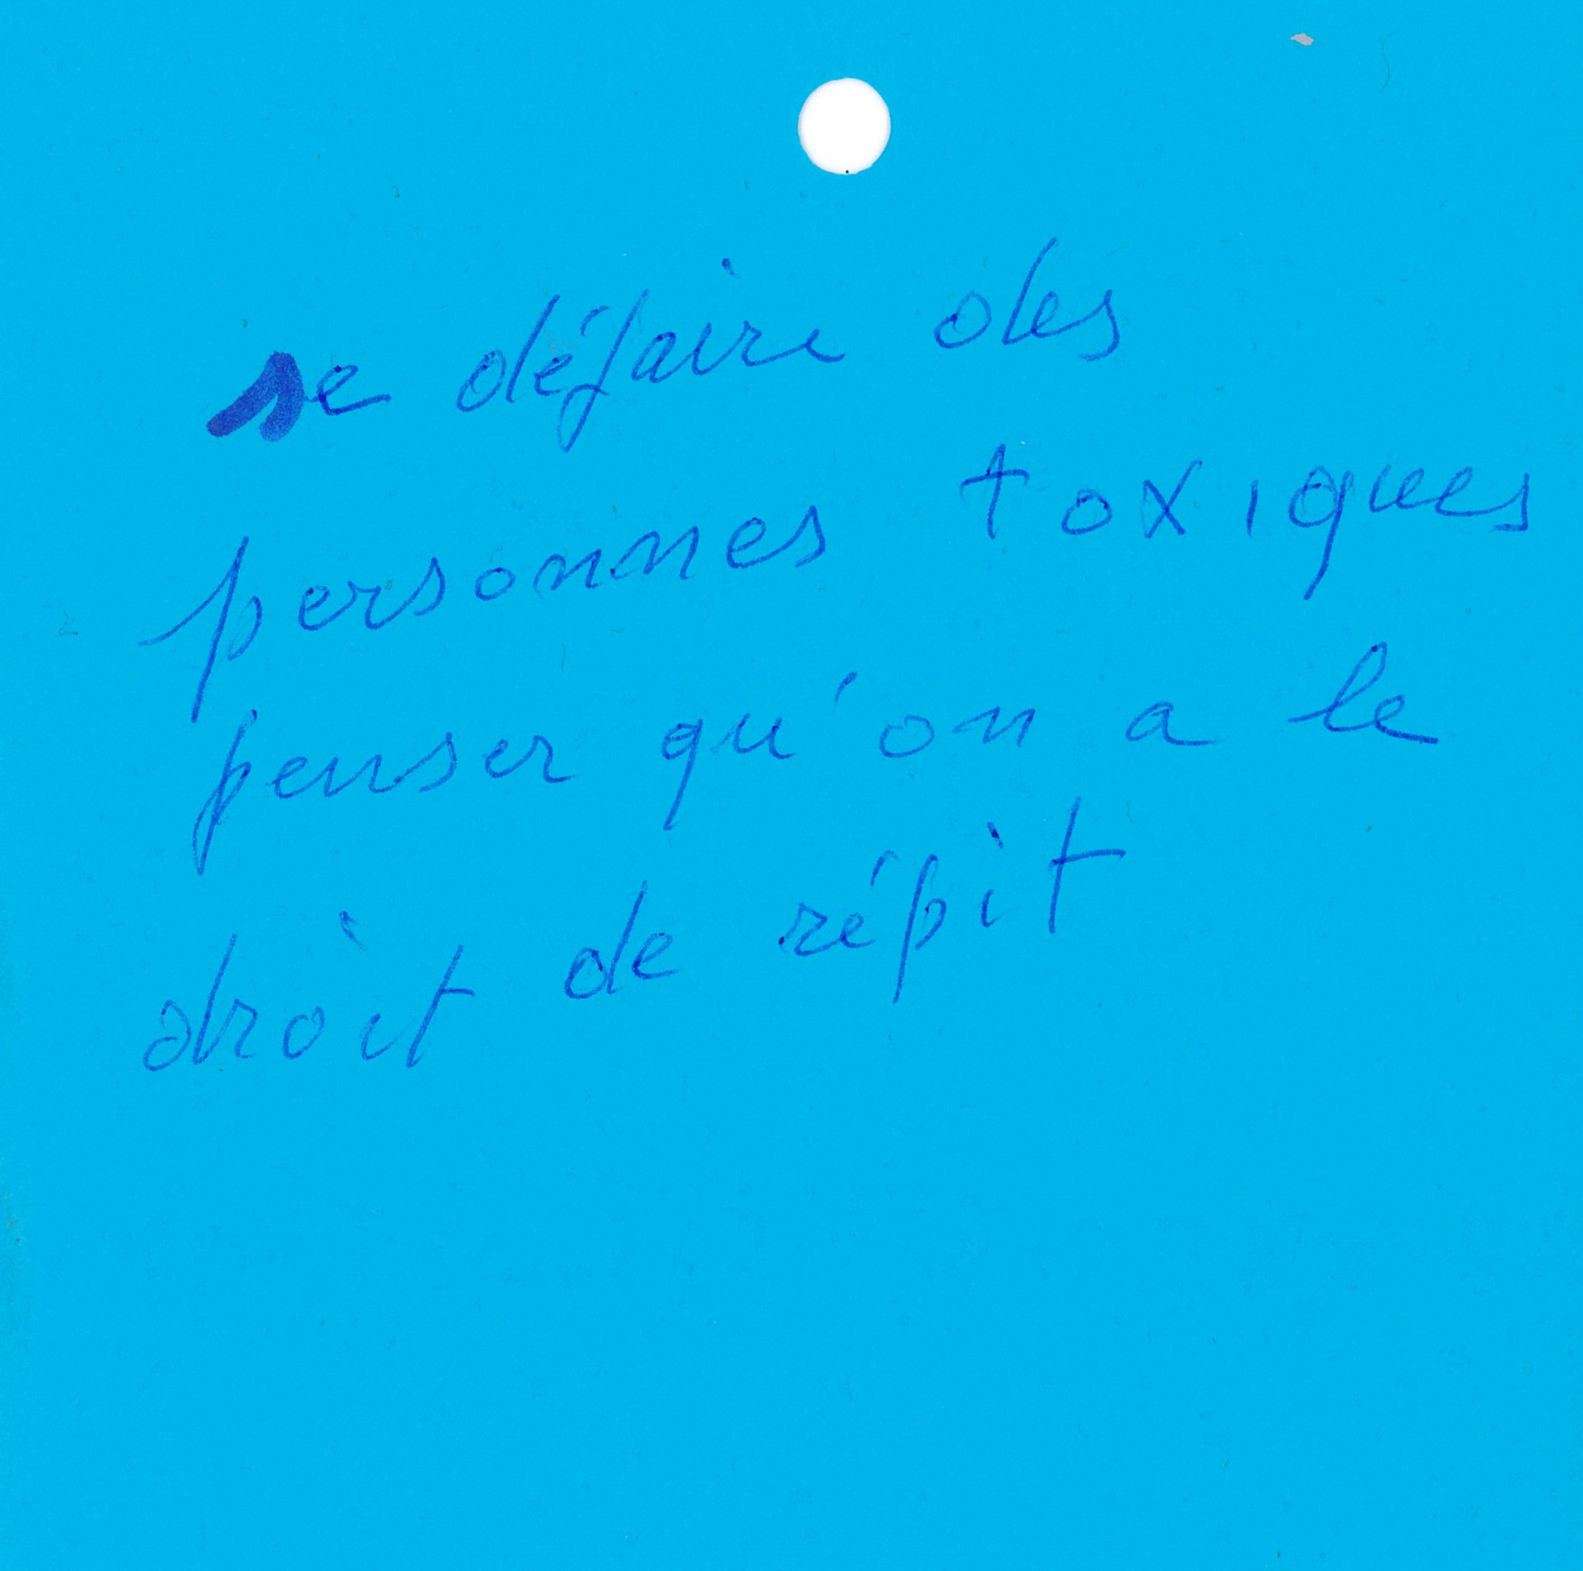 se défaire des
personnes toxiques
penser qu'on a le
droit de répit